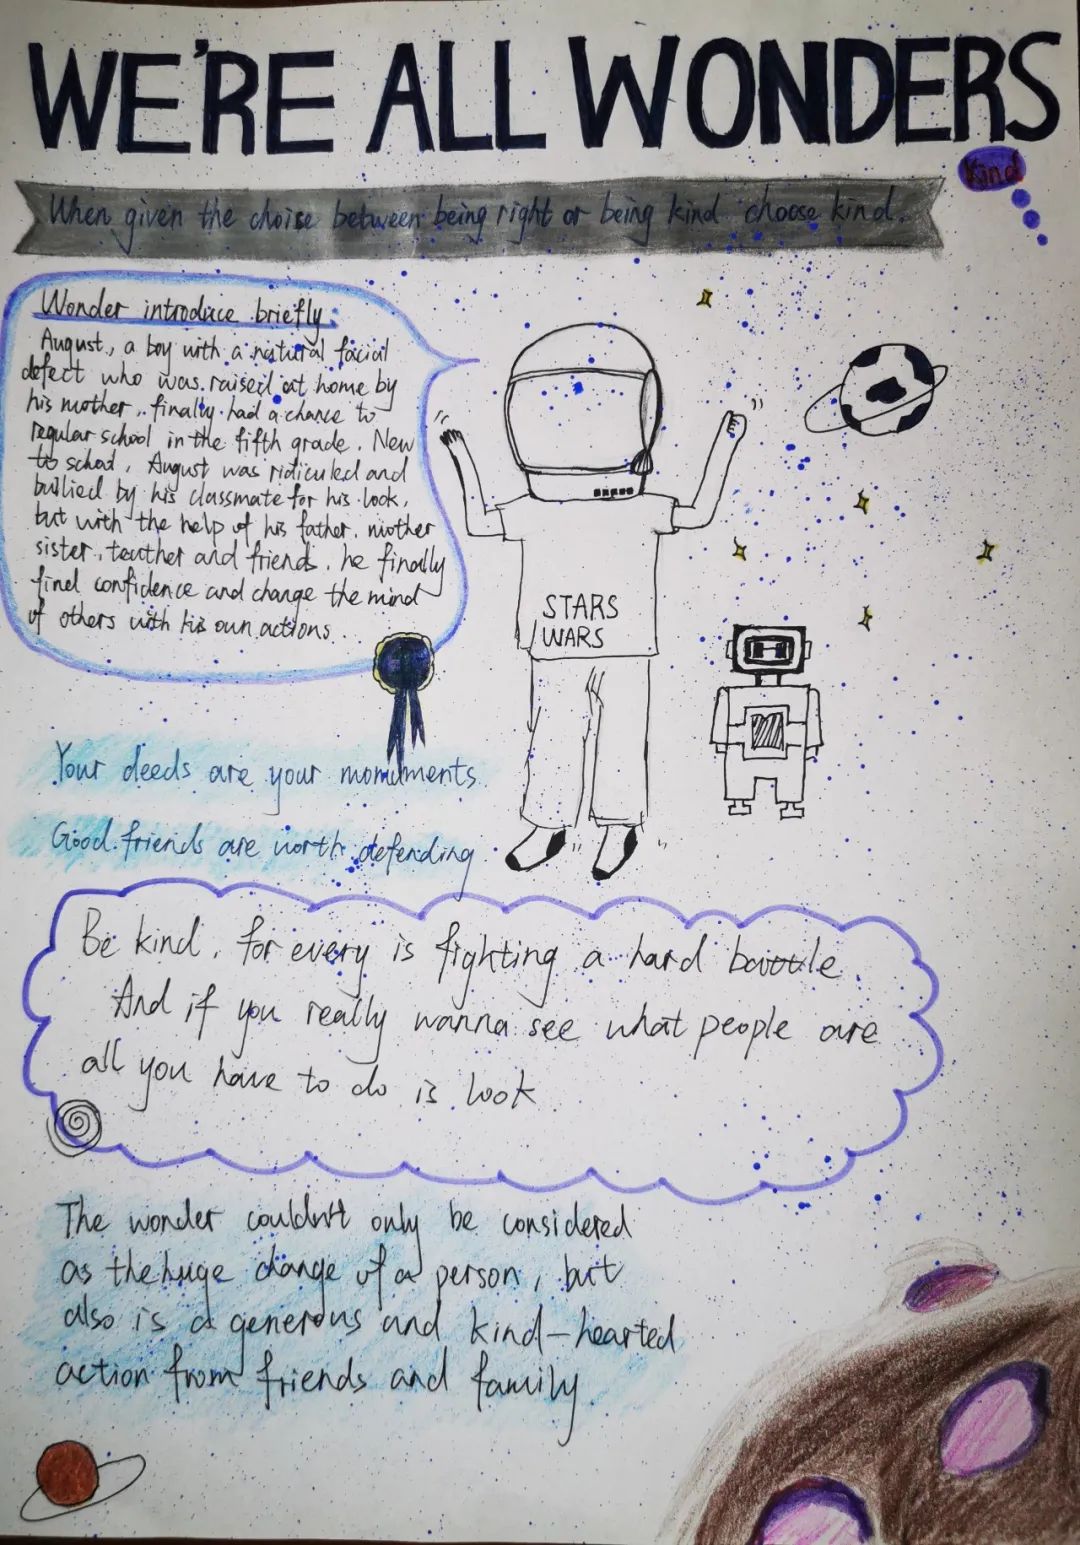 WE'RE ALL WONDERS
Kind
When given the choise between being right or being kind choose kind.
Wonder introduce briefly:
August, a boy with a natural facial
defect who was raised at home by
his mother, finally had a chance to
regular school in the fifth grade. New
to school, August was ridiculed and
bullied by his classmate for his look,
but with the help of his father, mother
sister, teather and friends, he finally
find confidence and change the mind
of others with his own actions.
STARS
WARS
Your deeds are your monuments.
Good friends are worth defending.
Be kind, for every is fighting a hard battle
And if you really wanna see what people are
all you have to do is look
The wonder couldn't only be considered
as the huge change of a person, but
also is a generous and kind-hearted
action from friends and family